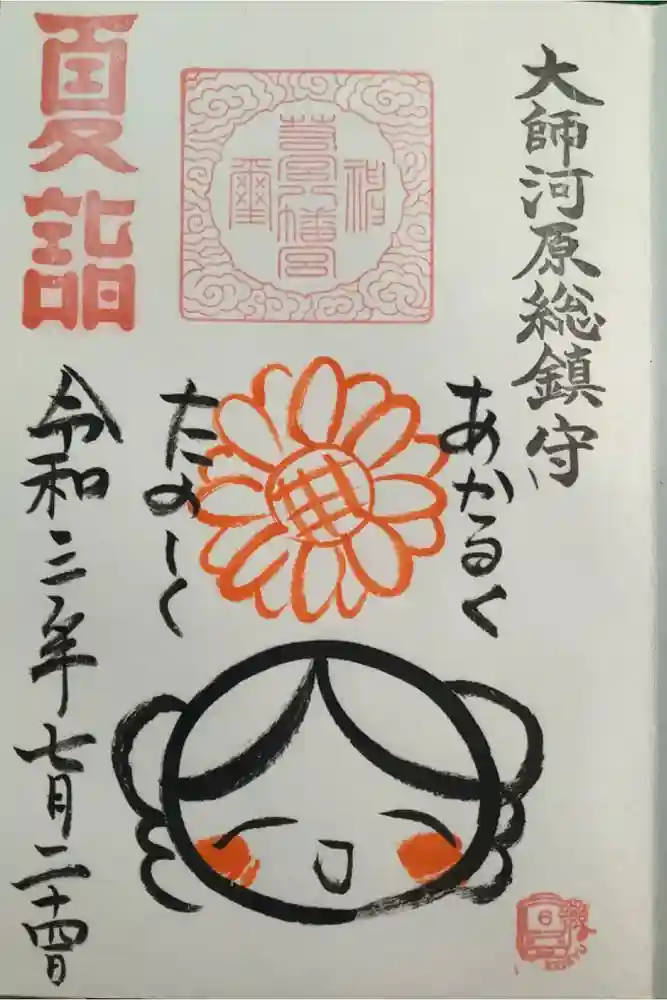 大師河原総鎮守
あかるく
たのしく
夏詣
令和三年七月二十四日